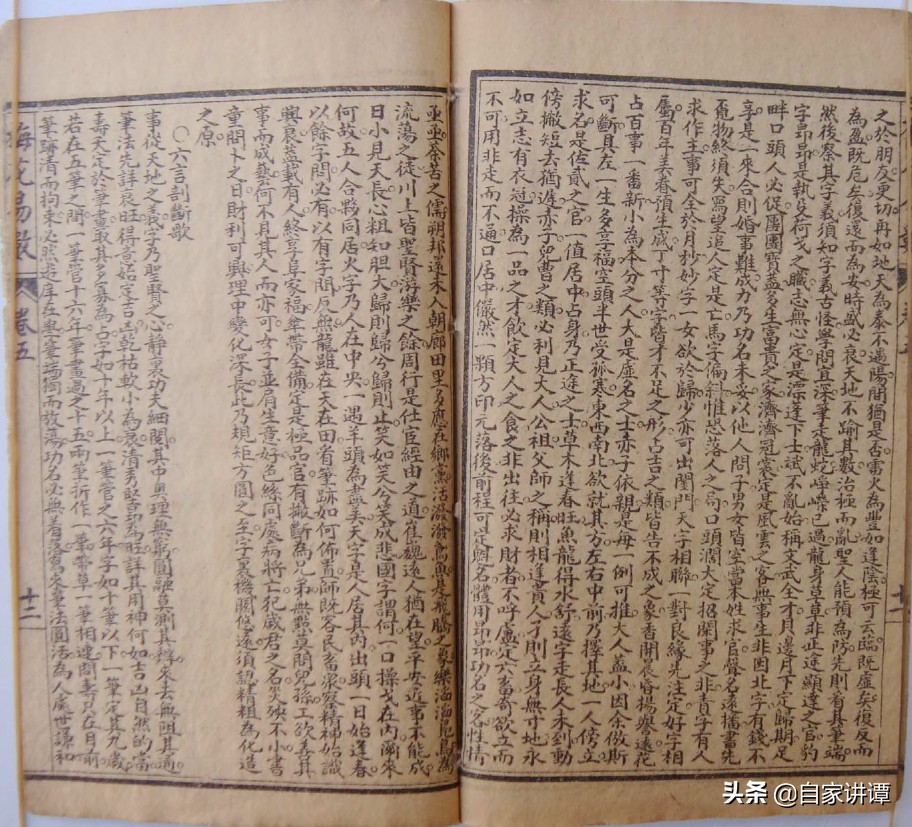 之於朋友更切再如地天為泰不遇陽間猶是否雷火為豐如逢陰極可云臨既虛矣復反而
為盈既危矣復還而為安時盛必衰天地不踰其數治極而亂聖人能預為防先則看其筆端
然後察其字義須知字義古怪學問宜深筆走龍蛇崢嶸已過龍身草草非正途顯達之官豹
字昂昂是執殳荷戈之職志無心定是漂蓬下士斌不亂始稱文武全才貝邊月下定歸期足
畔口頭人必促團團寶蓋多生富貴之家濟濟冠裳定是風雲之客無事生非因北字有錢不
享是一來合則婚事難成力乃功名未妥以他人問子男女皆空當本姓求官聲名遠播書先
物終須失寫望追人定是亡馬字偏斜惟恐落人之局口頭闊大定招閑事之非責字有人
求作主事可全於月秒妙字一女欲於歸少亦可出閨門天字相聯一對良緣先注定好字相
屬百年美眷預生成丁寸等字皆才不足之形占吉之類皆告不成之象香開晨昏楊譽遠花
占百事一番新小為本分之人大是虛名之士赤子依親是母一例可推大人蓋小因余做斯
可斷具左一生多享福空頭半世受祈寒東西南北欲就其方左右中前乃擇其地一人傍立
求名是佐貳之官一值居中占身乃正途之士草木逢春旺魚龍得水舒遠字走長人未到動
傍撇短去猶遲赤子兒曹之類必利見大人公祖父師之稱則相逢貴人子則立身無寸地永
如立志有衣冠操為一品之才飲定大人之食之非出往必求財者不呼盧定六畜奇欲立而
不可用非走而不通口居中儼然一顆方印元落後前程可定鮮名體用昂昂功名之名性情
之儒朔邦遠未入朝廊田里多應在鄉黨活潑潑鳶魚是飛騰之象樂滔滔鳧鳥為
流蕩之徒川上皆聖賢游樂之餘周行是仕宦經由之道崔巍遠人猶在望平安近事不能成
日小見天長心粗知胆大歸則歸兮歸則止笑如笑兮笑成悲國字謂何一口操戈在內㵎來
何故五人合夥同居火字乃人在中央一遇羊頭為盡美天字是人居其內出頭一日始逢春
以餘字問必有以有字問反無龍雖在天在田省筆跡如何佈置師既容民畜眾察精神始識
興衰蓋載有人終享阜家福傘帶全備定是極品官有撇斷為兄弟無點莫問兒孫工欲善其
事而成藝何不見其人而亦可女子並肩生意好色絲同處病將亡犯歲君之名災殃不小書
童問卜之日財利可興理中變化深長此乃規矩方圓之至字裏機關悠遠須認精粗為化造
之原
○六言剖斷歌
事從天地之義字乃聖賢之心靜裏功夫細閱其中奧理無窮圓融莫測其釋來去無阻其通
筆法先詳衰旺得意妨定吉凶乾枯軟小為衰清秀堅昂為旺詳其用神何如吉凶自然的當
壽夭定於筆畫最其多寡為占字如十年以上一筆管之六年字如十筆以下一筆定其九歲
若在五筆之間一筆管十六年一筆畫過之十五兩筆折作一筆帶草一筆相連問壽只在目前
筆跡清而拘束必然遊庠在泮筆端獨而放蕩功名必無着落寫來筆法圓活為人處世謙和
梅花易數
卷五
十二
十二
头条 @自家讲谭